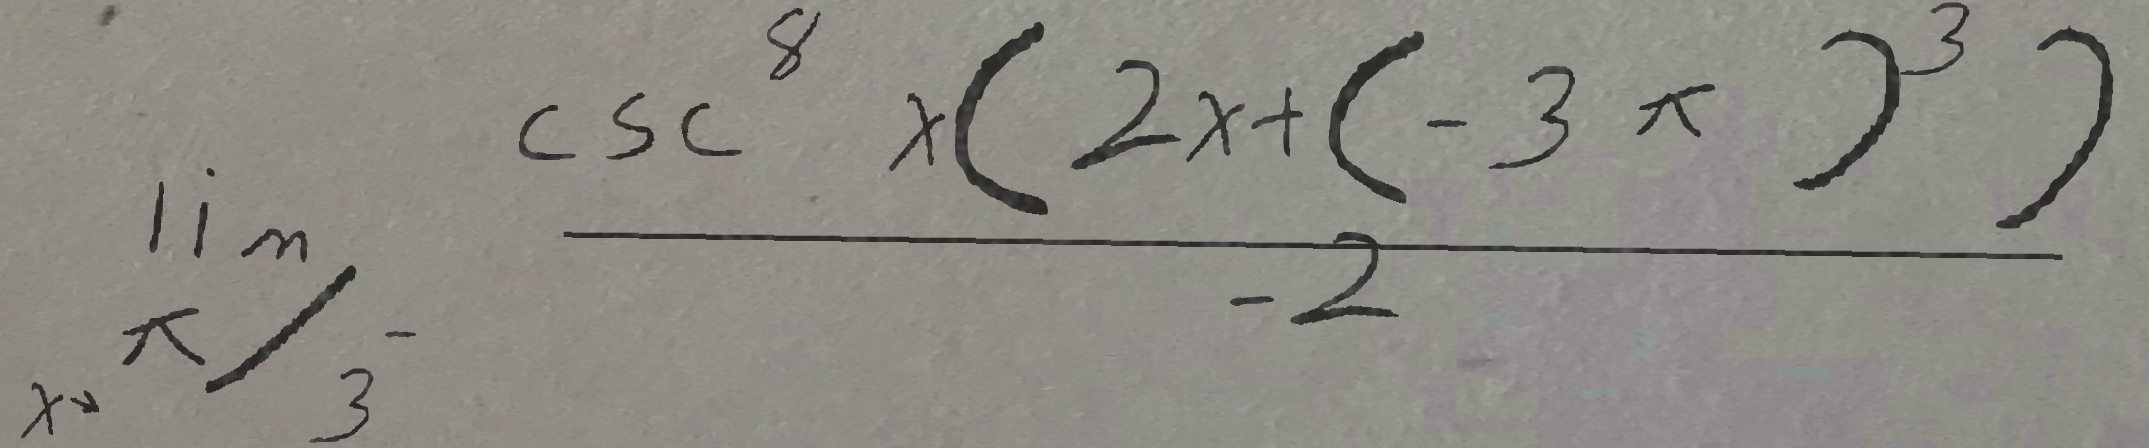 lim x→π/3⁻ csc⁸ x(2x+(-3π)³) / -2